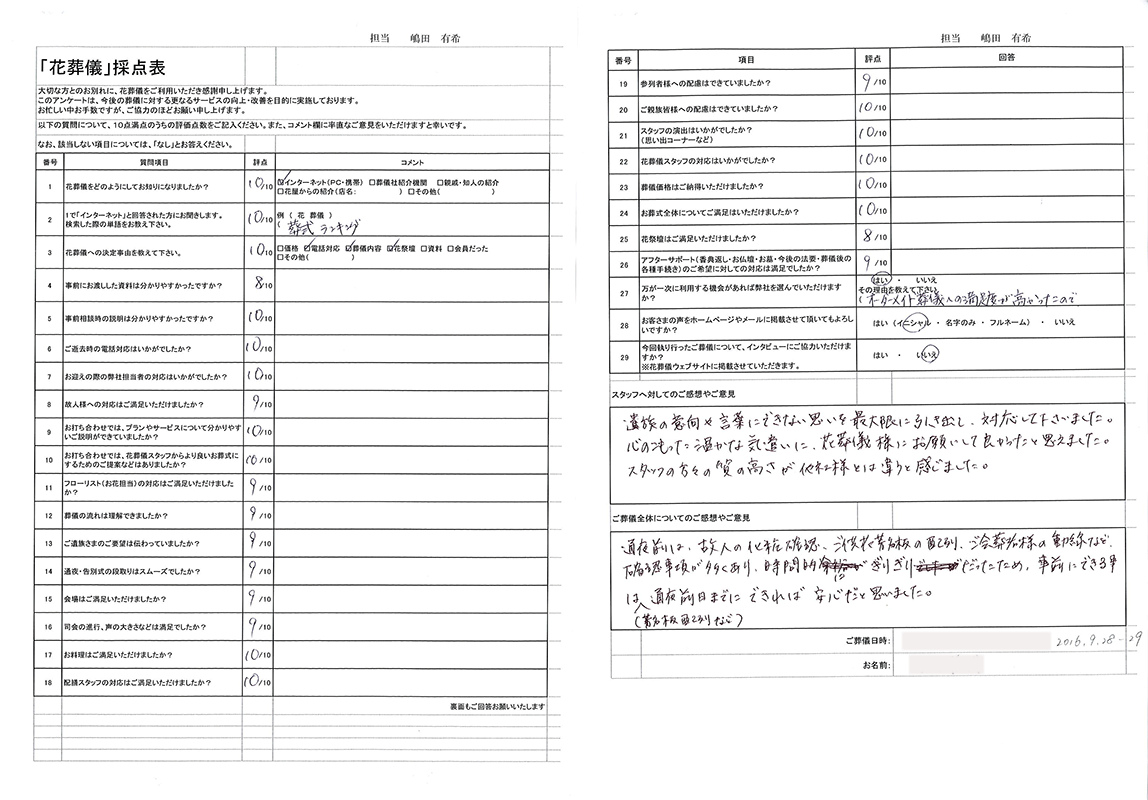 担当 嶋田 有希
「花葬儀」採点表
大切な方とのお別れに、花葬儀をご利用いただき感謝申し上げます。
このアンケートは、今後の葬儀に対する更なるサービスの向上・改善を目的に実施しております。
お忙しい中お手数ですが、ご協力のほどお願い申し上げます。
以下の質問について、10点満点のうちの評価点数をご記入ください。また、コメント欄に率直なご意見をいただけますと幸いです。
なお、該当しない項目については、「なし」とお答えください。
番号 質問項目 評点 コメント
1 花葬儀をどのようにしてお知りになりましたか? 10/10 ☑インターネット(PC・携帯) □葬儀社紹介機関 □親戚・知人の紹介
□花屋からの紹介(店名: ) □その他( )
2 1で「インターネット」と回答された方にお聞きします。
検索した際の単語をお教え下さい。 10/10 例 ( 花 葬儀 )
( 葬式 ランキング
3 花葬儀への決定事由を教えて下さい。 10/10 □価格 ☑電話対応 ☑葬儀内容 ☑花祭壇 □資料 □会員だった
□その他( )
4 事前にお渡しした資料は分かりやすかったですか? 8/10
5 事前相談時の説明は分かりやすかったですか? 10/10
6 ご逝去時の電話対応はいかがでしたか? 10/10
7 お迎えの際の弊社担当者の対応はいかがでしたか? 10/10
8 故人様への対応はご満足いただけましたか? 9/10
9 お打ち合わせでは、プランやサービスについて分かりやす
いご説明ができていましたか? 10/10
10 お打ち合わせでは、花葬儀スタッフからより良いお葬式に
するためのご提案などはありましたか? 10/10
11 フローリスト(お花担当)の対応はご満足いただけました
か? 9/10
12 葬儀の流れは理解できましたか? 9/10
13 ご遺族さまのご要望は伝わっていましたか? 9/10
14 通夜・告別式の段取りはスムーズでしたか? 9/10
15 会場はご満足いただけましたか? 9/10
16 司会の進行、声の大きさなどは満足でしたか? 9/10
17 お料理はご満足いただけましたか? 10/10
18 配膳スタッフの対応はご満足いただけましたか? 10/10
裏面もご回答お願いいたします
担当 嶋田 有希
番号 項目 評点 回答
19 参列者様への配慮はできていましたか? 9/10
20 ご親族皆様への配慮はできていましたか? 10/10
21 スタッフの演出はいかがでしたか?
(思い出コーナーなど) 10/10
22 花葬儀スタッフの対応はいかがでしたか? 10/10
23 葬儀価格はご納得いただけましたか? 10/10
24 お葬式全体についてご満足はいただけましたか? 10/10
25 花祭壇はご満足いただけましたか? 8/10
26 アフターサポート(香典返し・お仏壇・お墓・今後の法要・葬儀後の
各種手続き)のご希望に対しての対応は満足でしたか? 9/10
27 万が一次に利用する機会があれば弊社を選んでいただけます
か? はい ・ いいえ
その理由を教えて下さい
( オーダーメイド葬儀への満足度が高かったので
28 お客さまの声をホームページやメールに掲載させて頂いてもよろし
いですか? はい (イニシャル ・ 名字のみ ・ フルネーム) ・ いいえ
29 今回執り行ったご葬儀について、インタビューにご協力いただけま
すか?
※花葬儀ウェブサイトに掲載させていただきます。 はい ・ いいえ
スタッフへ対してのご感想やご意見
遺族の意向や言葉にできない思いを最大限に引き出し、対応して下さいました。
心のこもった温かな気遣いに、花葬儀様にお願いして良かったと思えました。
スタッフの方々の質の高さが他社様とは違うと感じました。
ご葬儀全体についてのご感想やご意見
通夜前は、故人の化粧確認、ご供花芳名板の配列、ご会葬者様の動線など、
確認事項が多くあり、時間的にぎりぎりだったため、事前にできる事
は、通夜前日までにできれば安心だと思いました。
(芳名板配列など)
ご葬儀日時: 2016.9.28-29
お名前: